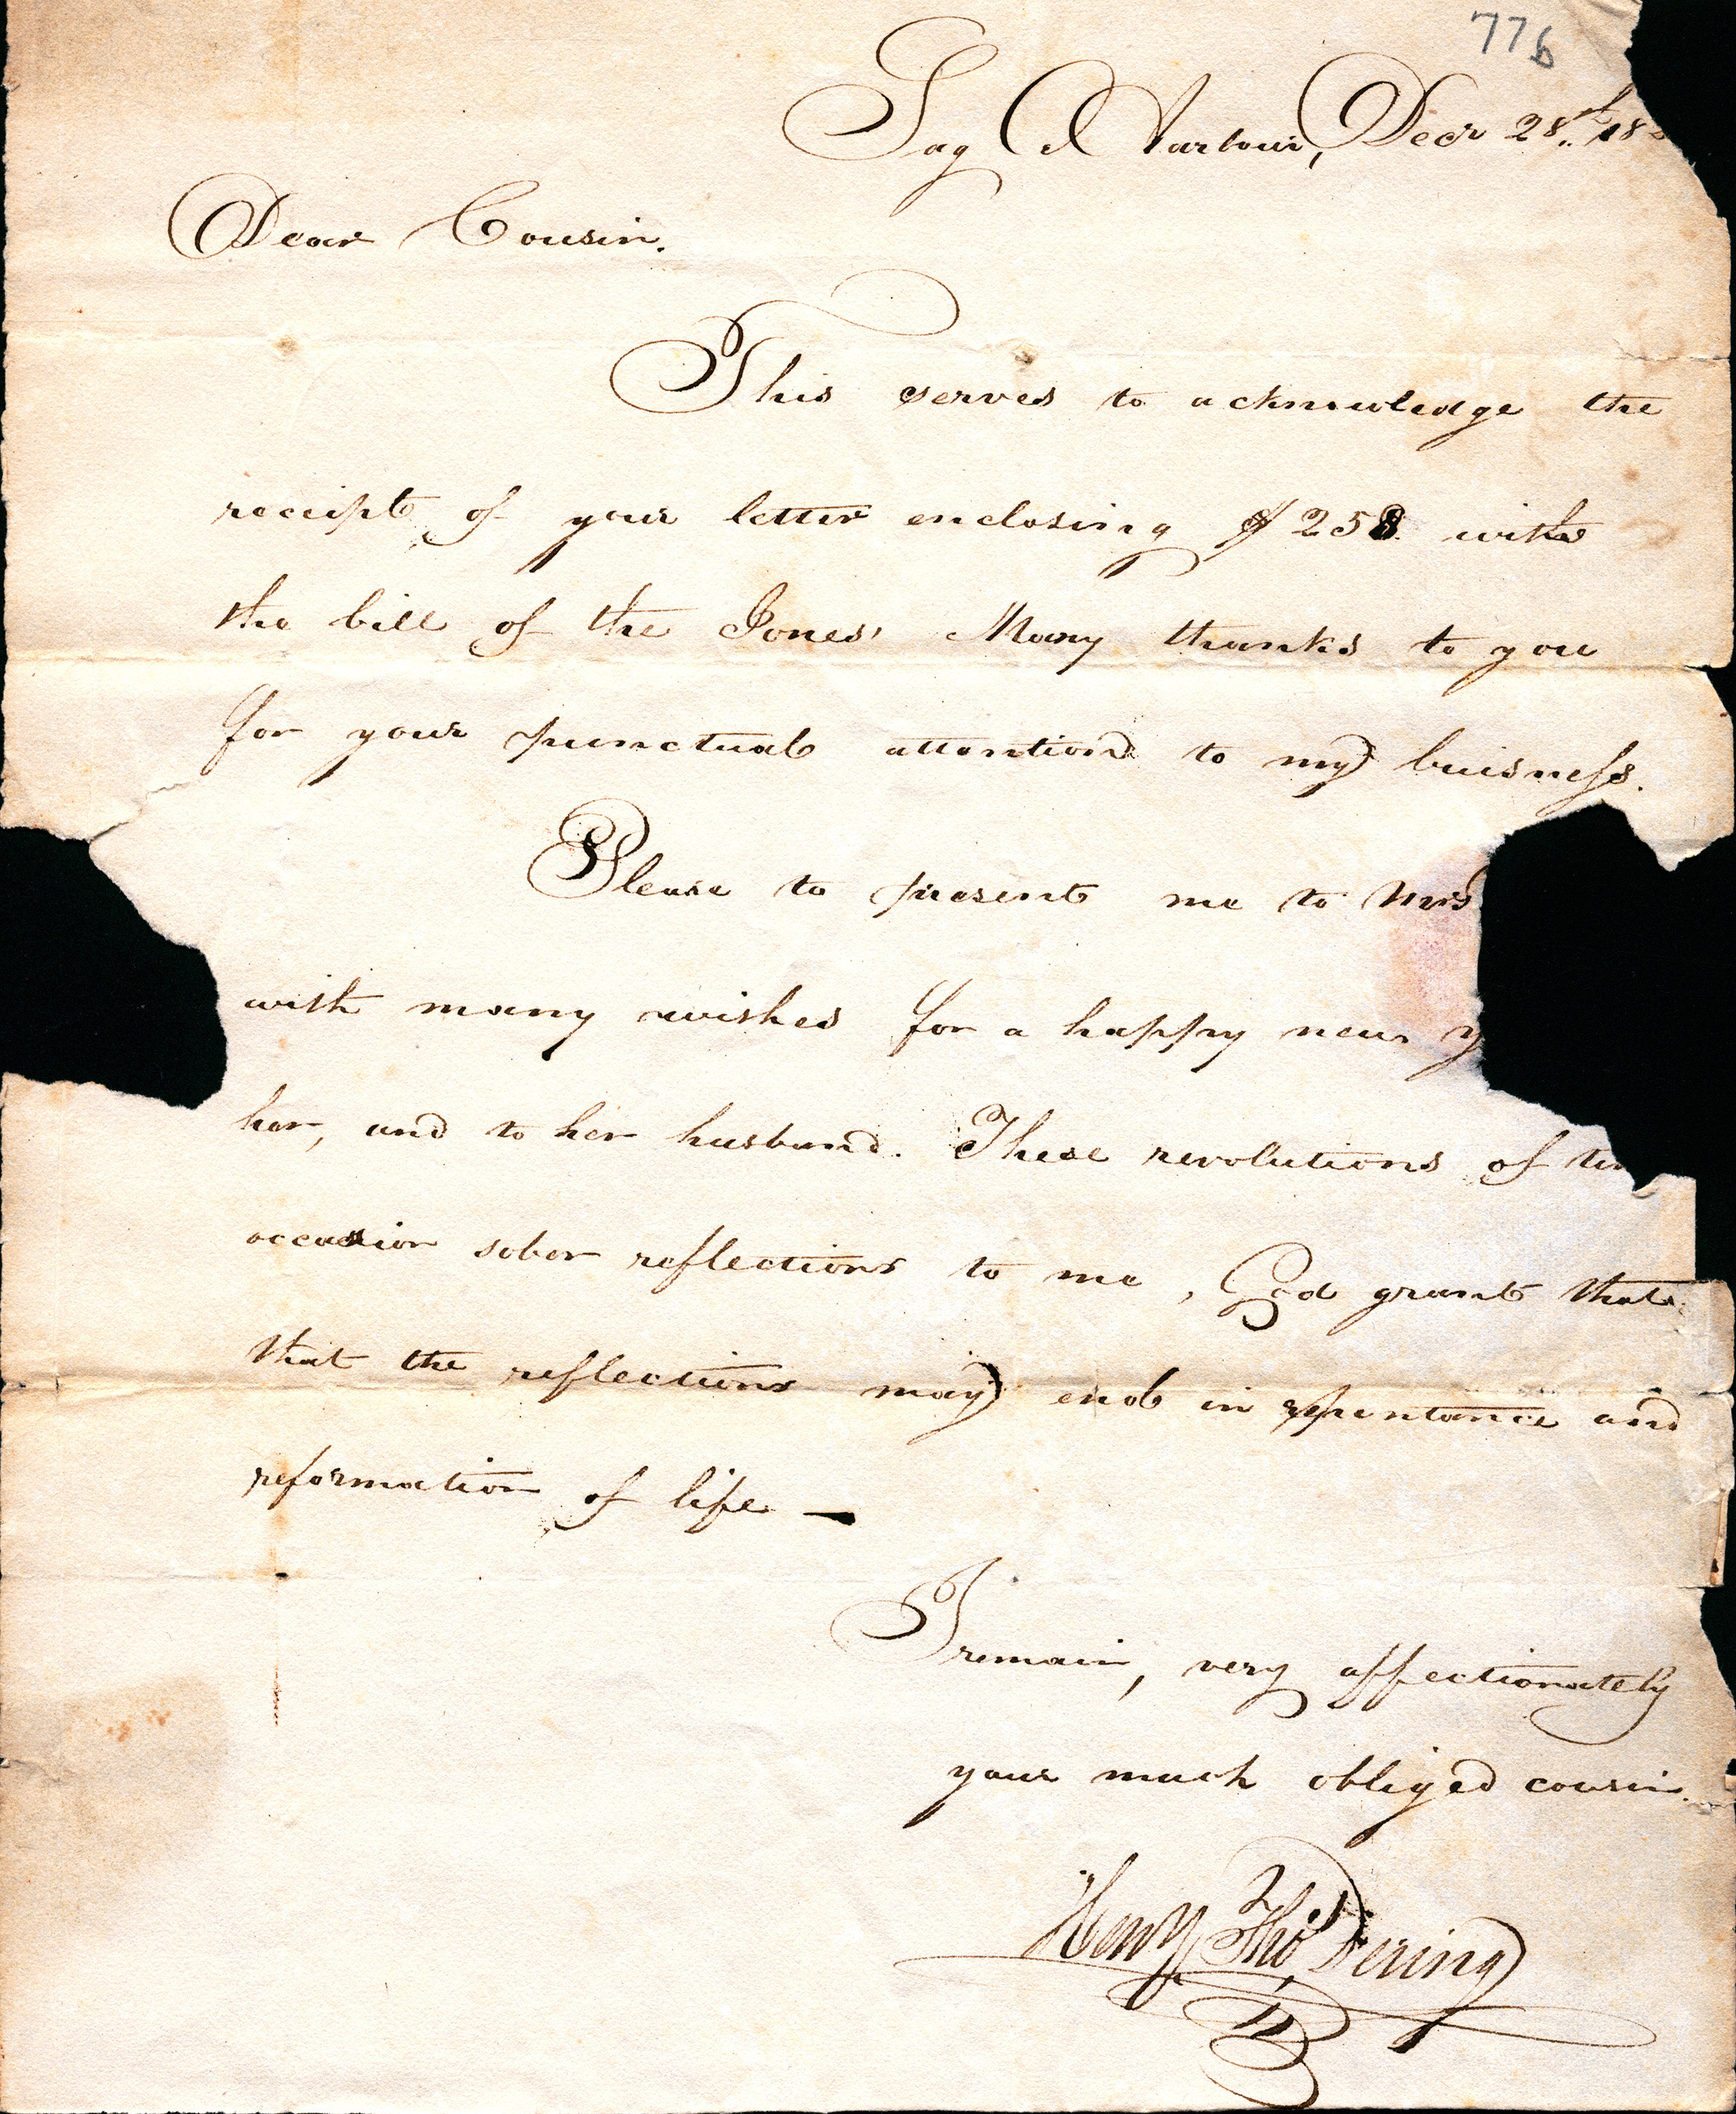 776
Sag Harbour, Decr 28th 18
Dear Cousin.
This serves to acknowledge the
receipt of your letter enclosing $258 with
the bill of the Jones' Many thanks to you
for your punctual attention to my buisness.
Please to present me to Mrs
with many wishes for a happy new y
her, and to her husband. These revolutions of tim
occasion sober reflections to me, God grant that
that the reflections may end in repentance and
reformation of life —
I remain, very affectionately
your much obliged cousin.
Henry Thos Dering